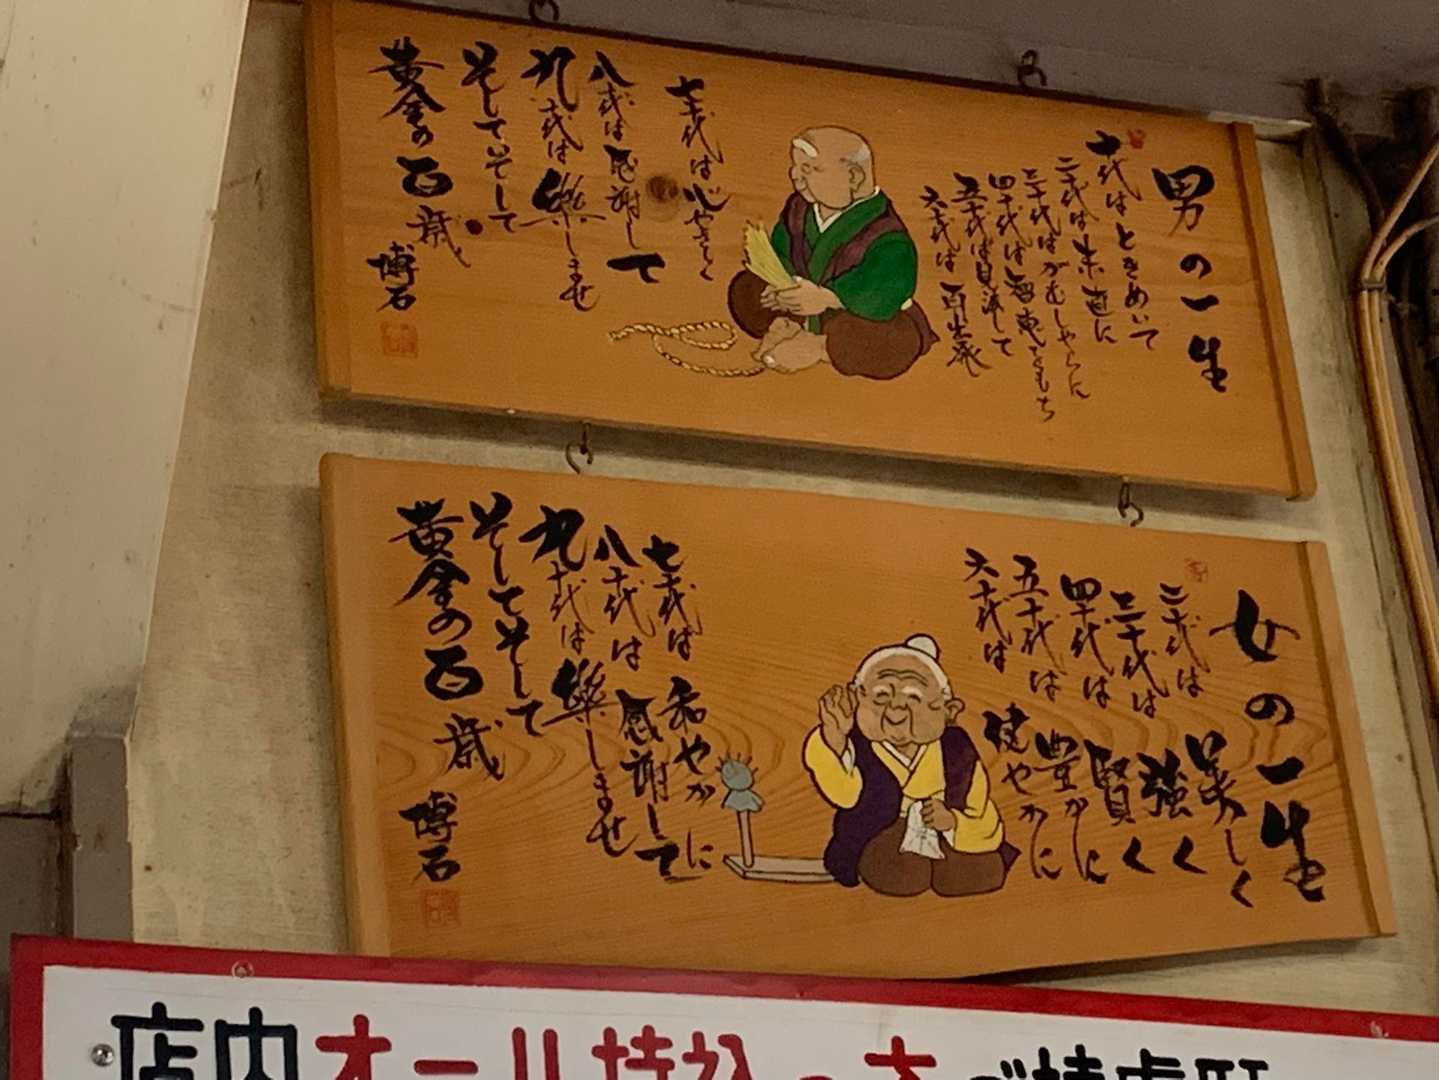 男の一生
十代はときめいて
二十代は素直に
三十代はがむしゃらに
四十代は智恵をもち
五十代は見渡して
六十代は再出発
七十代は心やさしく
八十代は感謝して
九十代は樂しませ
そしてそして
黄金の百歳
博石
女の一生
二十代は美しく
三十代は強く
四十代は賢く
五十代は豊かに
六十代は健やかに
七十代は和やかに
八十代は感謝して
九十代は樂しませ
そしてそして
黄金の百歳
博石
店内オール